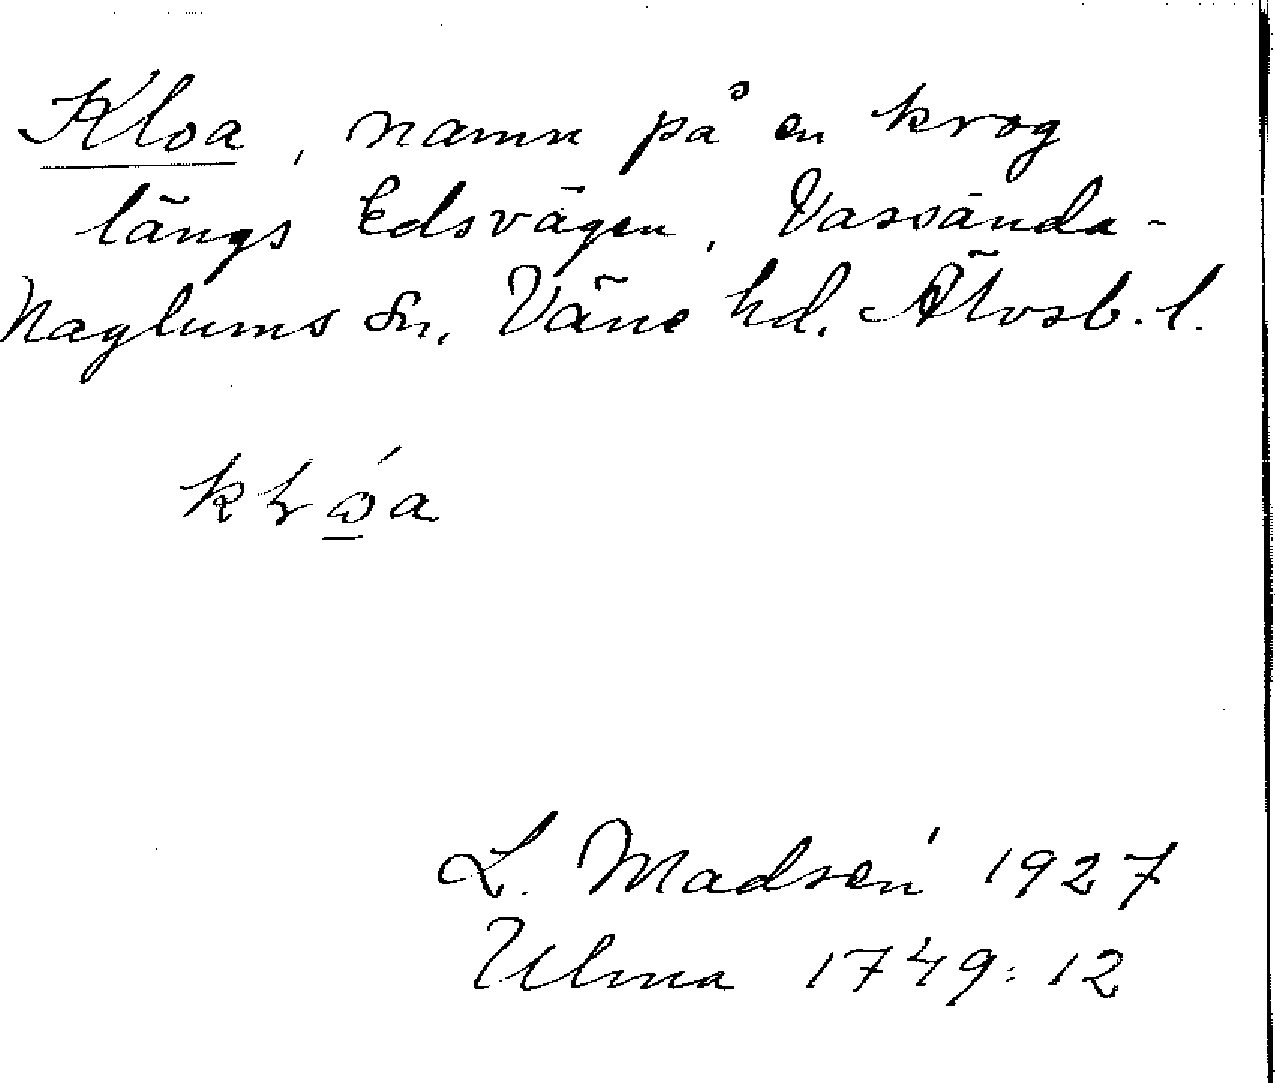 Kloa, namn på en krog
längs Edsvägen, Vassända-
Naglums sn, Väne hd. Älvsb. l.
L. Madsén 1927
Ulma 1749:12